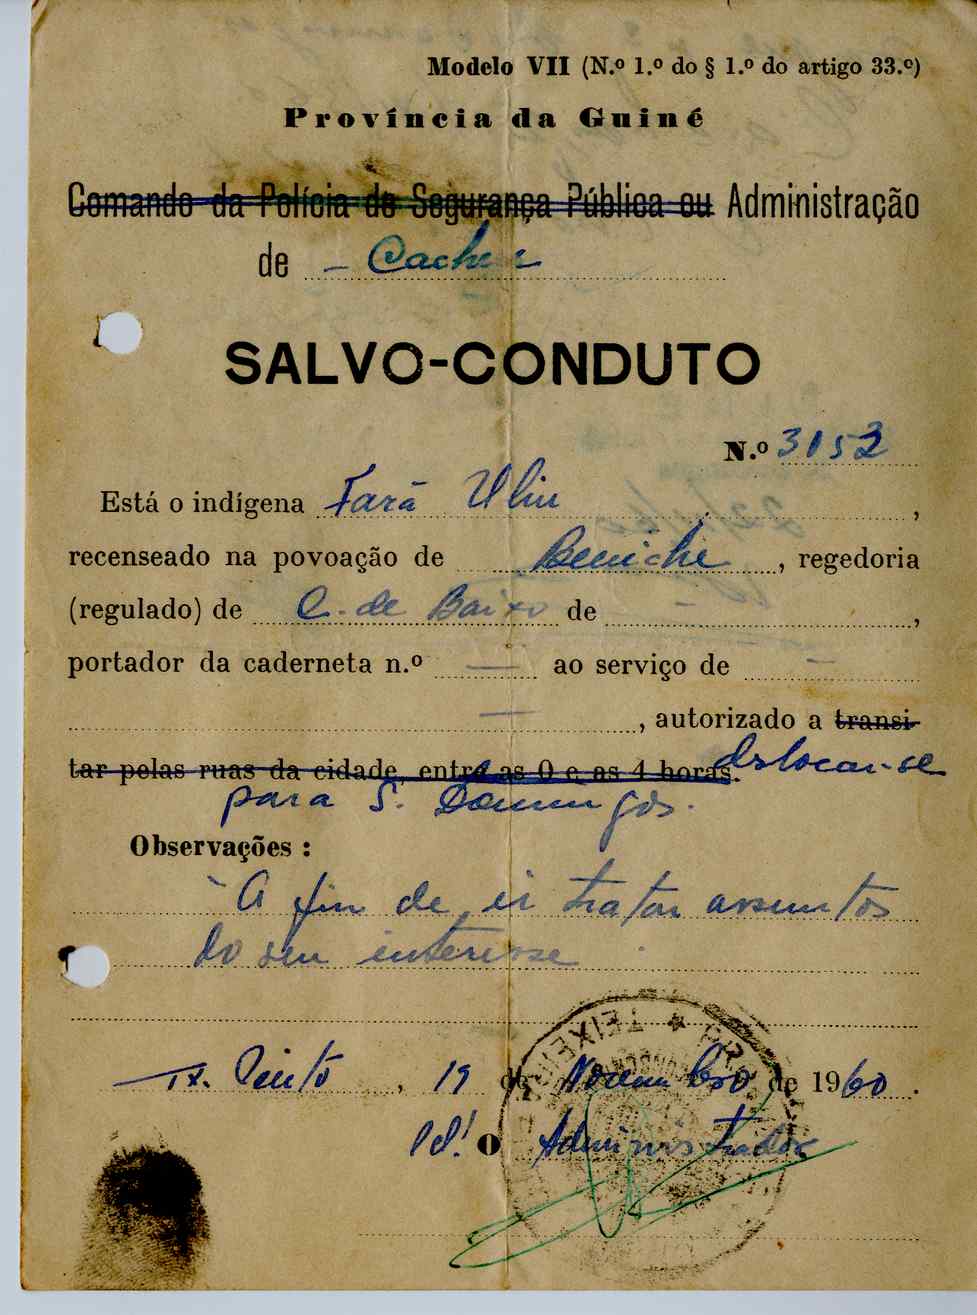 Modelo VII (N.º 1.º do § 1.º do artigo 33.º)
Província da Guiné
Comando da Polícia de Segurança Pública ou Administração
de - Cacheu
SALVO-CONDUTO
N.º 3152
Está o indígena Fará Uliu,
recenseado na povoação de Beniche, regedoria
(regulado) de C. de Baixo de ,
portador da caderneta n.º — ao serviço de
—, autorizado a transi-
tar pelas ruas da cidade, entre as 0 e as 4 horas. deslocar-se
para S. Domingos.
Observações :
A fim de ir tratar assuntos
do seu interesse.
TEIXEIRA
Tx. Pinto, 19 de Novembro de 1960.
O Administrador